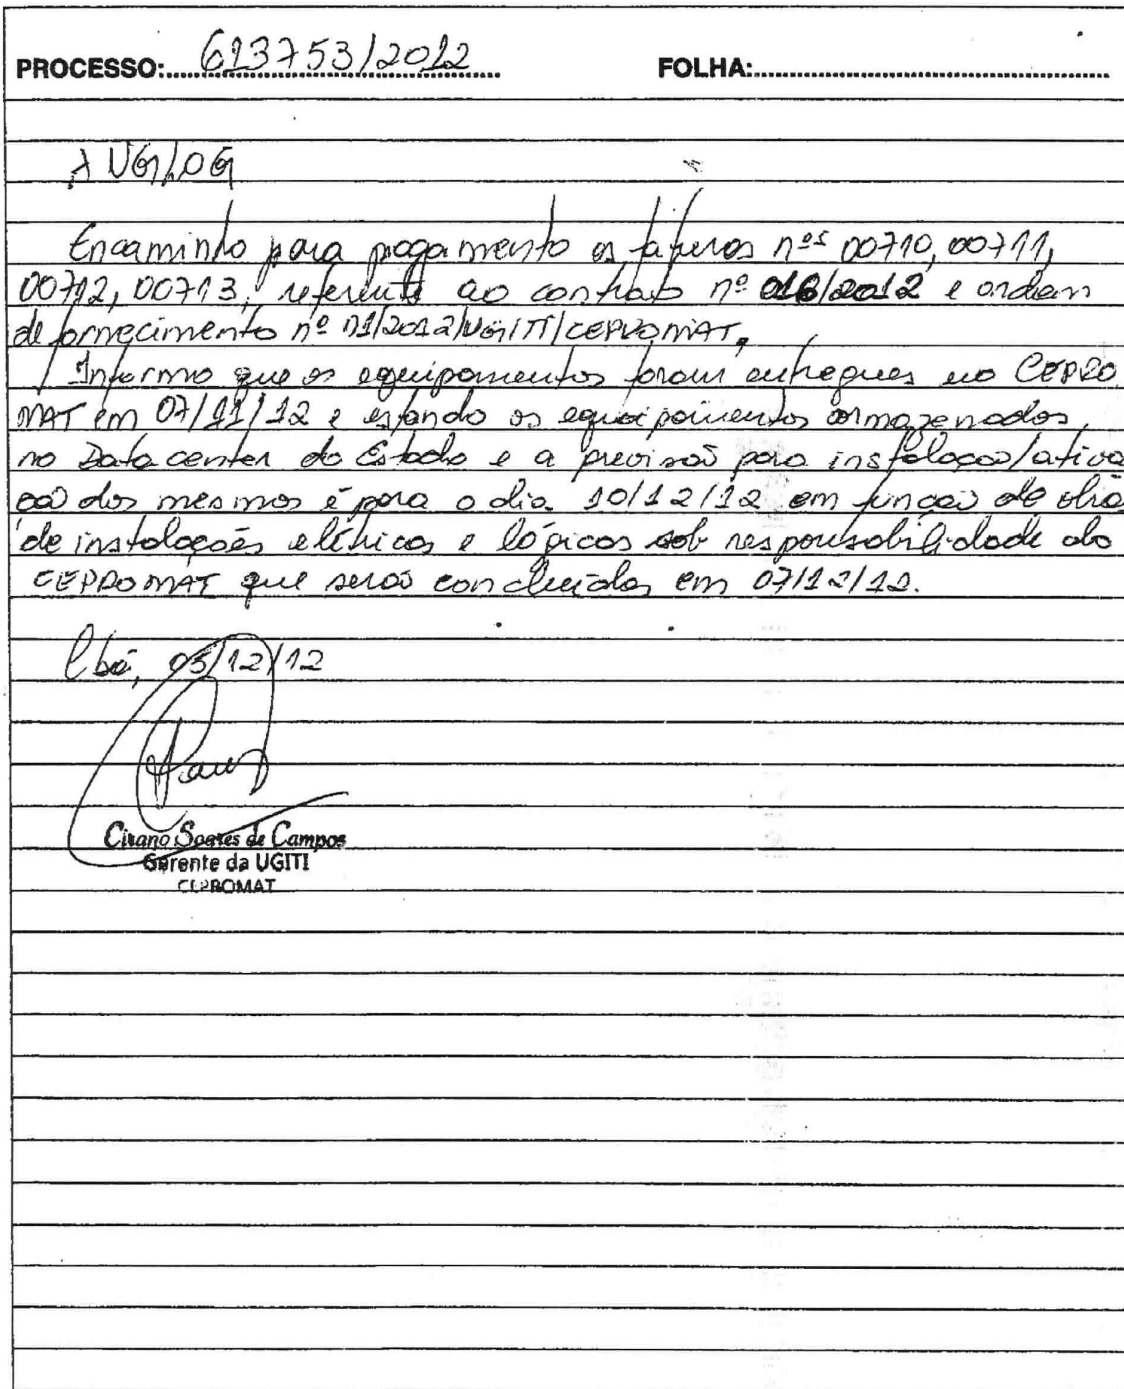 PROCESSO: 613753/2012 FOLHA:
À UG/LOG
Encaminho para pagamento as faturas nºs 00710, 00711,
00712, 00713, referente ao contrato nº 016/2012 e ordem
de fornecimento nº 01/2012/UGITI/CEPROMAT.
Informo que os equipamentos foram entregues no CEPRO
MAT em 07/11/12 e estando os equipamentos armazenados,
no Data center do Estado e a previsão para instalação/ativa
ção dos mesmos é para o dia 10/12/12 em função de obras
de instalações elétricas e lógicas sob responsabilidade do
CEPROMAT que serão concluídas em 07/12/12.
Cbá, 05/12/12
Cirano Soares de Campos
Gerente da UGITI
CEPROMAT